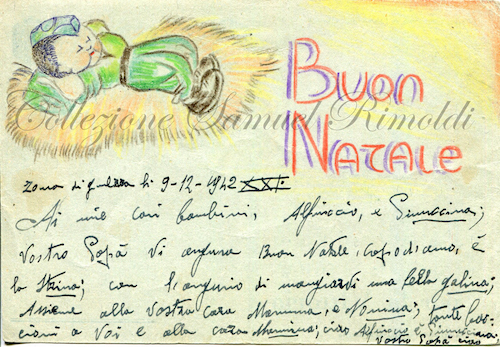 Buon
Natale
Collezione Samuel Rimoldi
Zona di guerra li 9-12-1942 XXI.
Ai miei cari bambini, Alfiuccio, e Giannaccina;
Vostro Papà vi augura Buon Natale, capodanno, è
la Strina; con l'augurio di mangiarvi una bella galina;
Assieme alla vostra cara Mamma, è Nonnina; tanti bac-
cioni a Voi e alla cara Mammina; ciao Alfiuccio e
Vostro Papà ciao